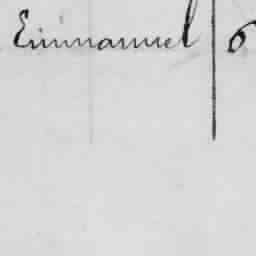 Emmanuel 6